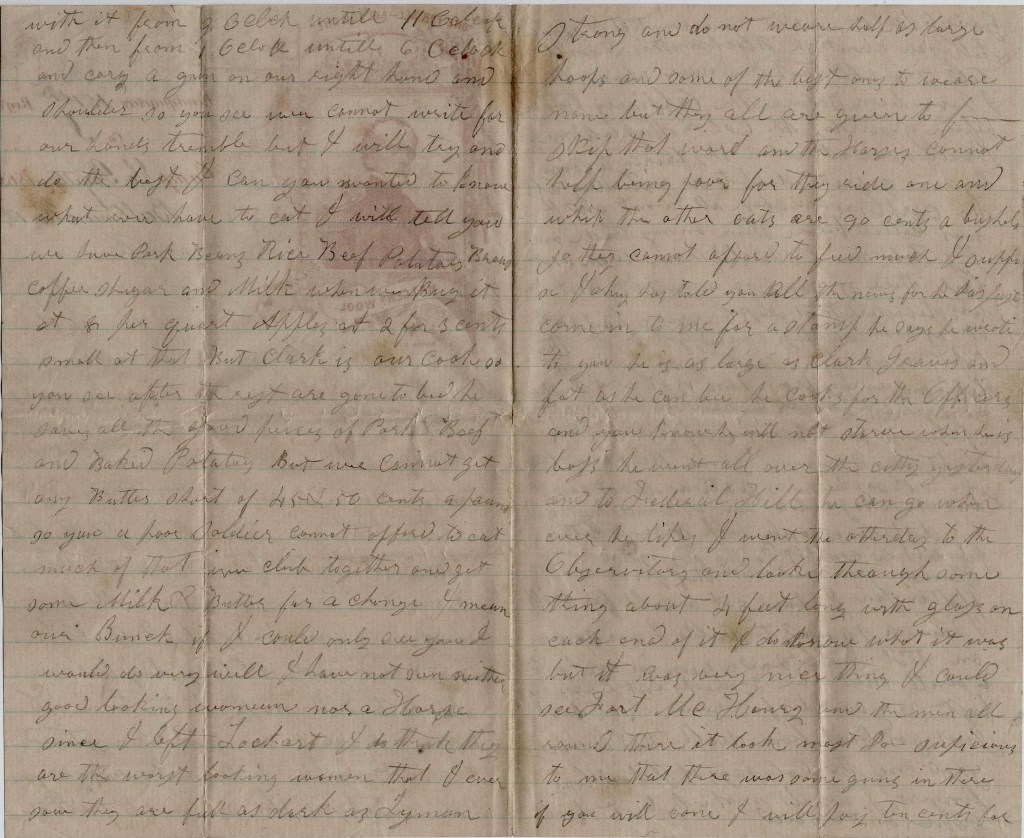 with it from 9 Oclock untill 11 Oclock
and then from 1 Oclock untill 6 Oclock
and cary a gun on our right hand and
shoulder so you see wee cannot write for
our hands tremble but I will try and
do the best I can you wanted to know
what wee have to eat I will tell you
we have Pork Beans Rice Beef Potatoes Bread
coffee shugar and Milk when wee Buy it
at 8 per quart Apples at 2 for 3 cents
small at that But Clark is our Cook so
you see after the rest are gone to bed he
saves all the good pieces of Pork Beef
and Baked Potatoes But wee cannot get
any Butter short of 45 & 50 cents a pound
so you see a poor Soldier cannot afford to eat
much of that wee club together and get
some Milk & Butter for a change I mean
our Bunck if I could only see you I
would do very well I have not seen neither
good looking womeen nor a Horse
since I left Lockart I do think they
are the worst looking women that I ever
saw they are full as dark as Lyman
Strong and do not weare half as large
hoops and some of the best ones to weare
none but they all are given to
skip that word and the Horses cannot
help being poor for they ride one and
whip the other oats are 90 cents a bushel
so they cannot afford to feed much I suppo
se John has told you all the news for he has just
come in to me for a stamp he says he wrote
to you he is as large as Clark Graves and
fat as he can bee he cooks for the Officers
and you know he will not starve when he is
boss he went all over the citty yesterday
and to Federal Hill he can go when
ever he likes I went the otherday to the
Observitory and looke through some
thing about 4 feet long with glass on
each end of it I do know what it was
but it was very nice thing I could
see Fort Mc Henry and the men all
round there it look most to suficious
to me that there was some guns in there
if you will come I will pay ten cents for